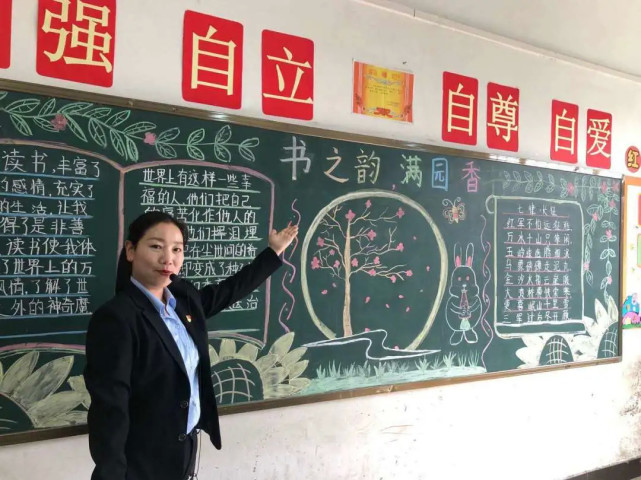 强 自立 自尊 自爱 红
书之韵,满园香
读书,丰富了
感情,充实了
的生活,让我
得了是非善
读书使我体
了世界上的万
风情,了解了世
外的神奇魔
世界上有这样一些幸
福的人,他们把自己
的痛苦化作他人的
们挥泪埋
在尘世间的希
却变成了种
治
七律·长征
红军不怕远征难
万水千山只等闲
五岭逶迤腾细浪
乌蒙磅礴走泥丸
金沙水拍云崖暖
大渡桥横铁索寒
更喜岷山千里雪
三军过后尽开颜